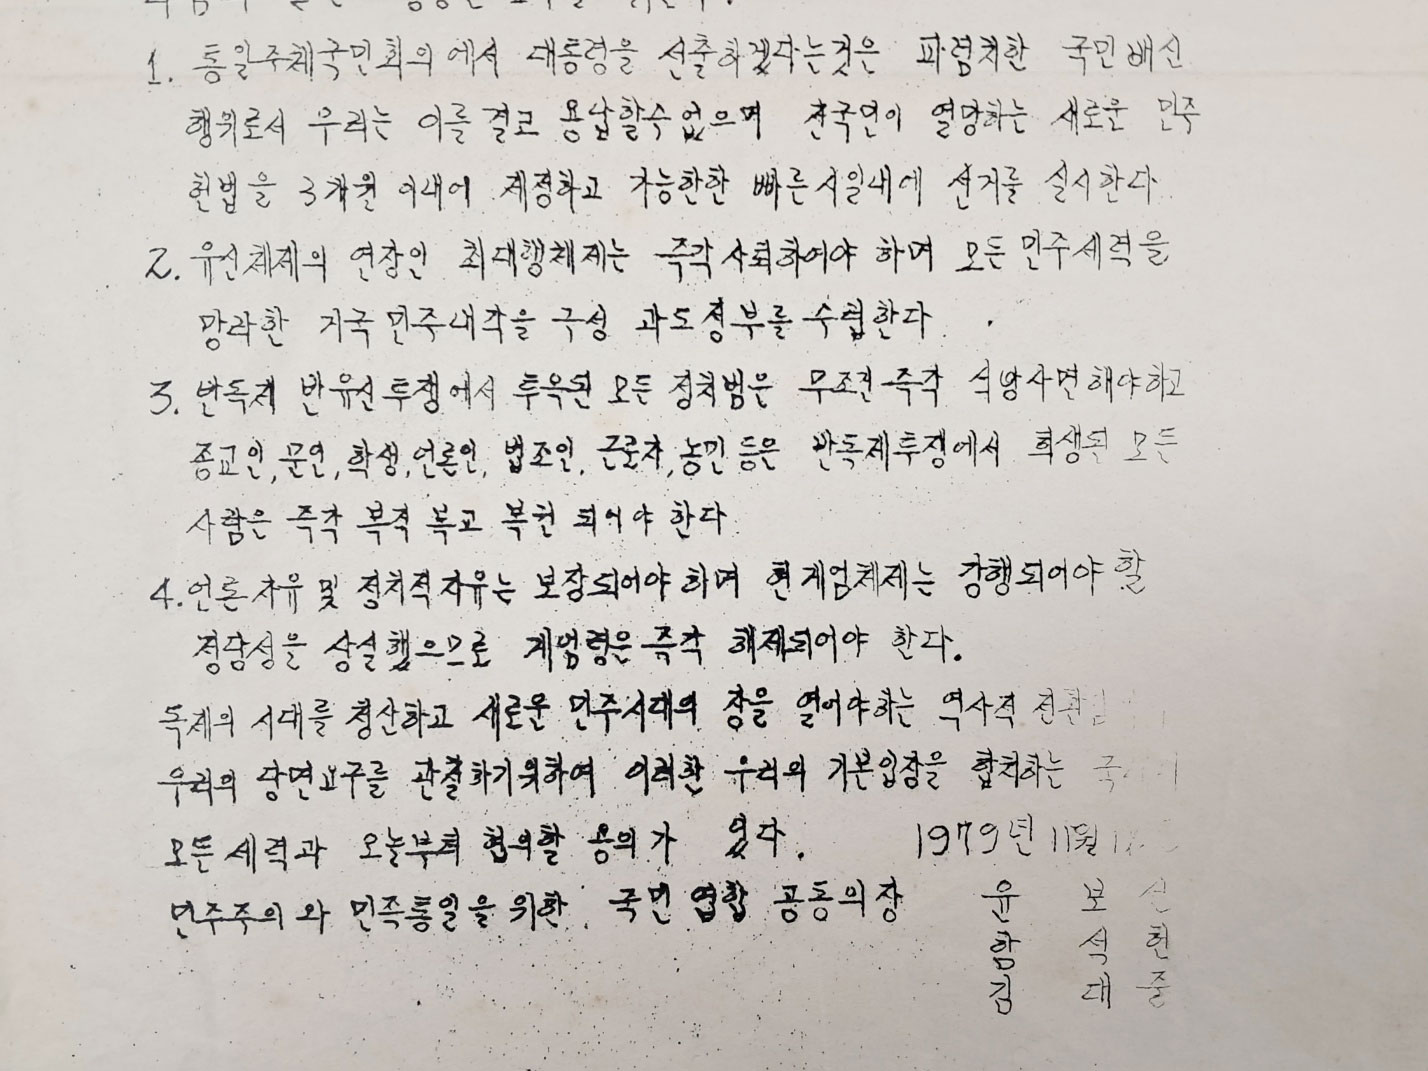 1. 통일주체국민회의에서 대통령을 선출하겠다는것은 파렴치한 국민배신
행위로서 우리는 이를 결코 용납할수 없으며 전국민이 열망하는 새로운 민주
헌법을 3개월 이내에 제정하고 가능한한 빠른시일내에 선거를 실시한다
2. 유신체제의 연장인 최대행체제는 즉각사퇴하여야 하며 모든 민주세력을
망라한 거국민주내각을 구성 과도정부를 수립한다.
3. 반독재 반유신투쟁에서 투옥된 모든 정치범은 무조건 즉각 석방사면해야하고
종교인, 문인, 학생, 언론인, 법조인, 근로자, 농민 등은 반독재투쟁에서 희생된 모든
사람은 즉각 복직 복교 복권 되어야 한다
4. 언론자유 및 정치적자유는 보장되어야 하며 현계엄체제는 강행되어야 할
정당성을 상실했으므로 계엄령은 즉각 해제되어야 한다.
독재의 시대를 청산하고 새로운 민주시대의 장을 열어야하는 역사적
우리의 당면요구를 관철하기위하여 이러한 우리의 기본입장을 합치하는
모든 세력과 오늘부터 협의할 용의가 있다. 1979년 11월
민주주의와 민족통일을 위한 국민연합 공동의장 윤 보 선
함 석 헌
김 대 중